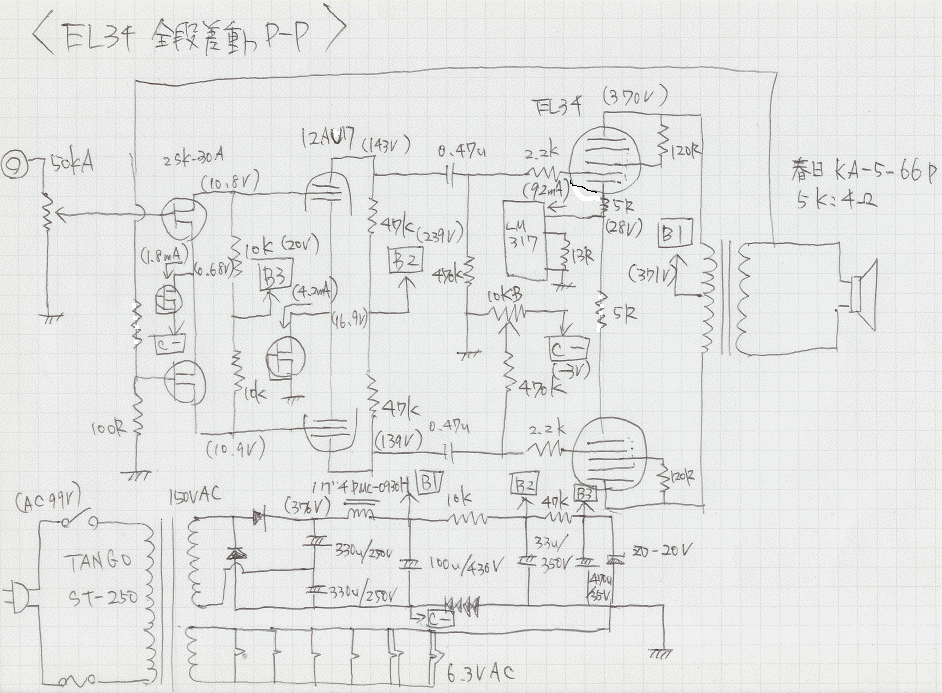 〈EL34 全段差動 P-P〉
EL34
(370V)
50kA
2SK-30A
12AU7
(143V)
0.47u
2.2k
120R
春日 KA-5-66P
5K:4Ω
(10.8V)
(92mA)
5R
(28V)
B1
LM
317
13R
47k
(239V)
B2
10k
(20V)
B3
(1.8mA)
(0.68V)
(4.2mA)
470k
(371V)
10KB
(16.9V)
5R
C-
C-
(-3V)
10k
470k
47k
100R
(10.9V)
(139V)
0.47u
2.2k
120R
(AC99V)
150VAC
(376V)
B1
10k
B2
B3
47k
TANGO
ST-250
330u/250V
100u/430V
33u/
350V
ZD-20V
330u/250V
470u
/35V
C-
6.3VAC